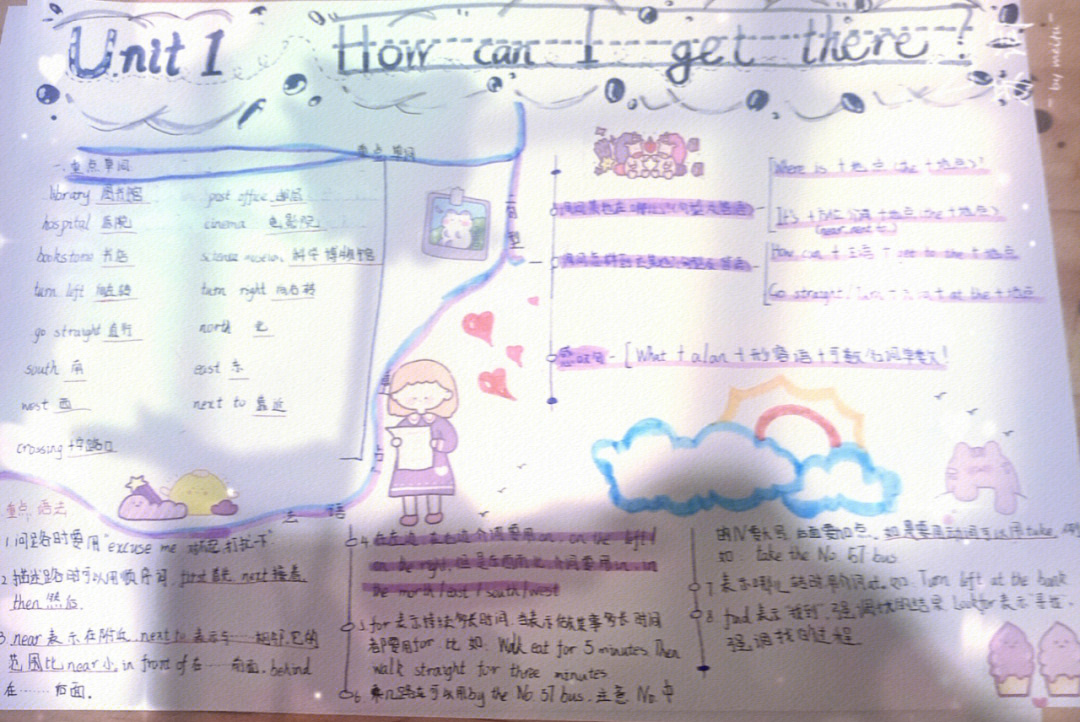 Unit 1 How can I get there?
by meitu
一.重点单词
重点单词
library 图书馆 post office 邮局
hospital 医院 cinema 电影院
bookstore 书店 science museum 科学博物馆
turn left 向左转 turn right 向右转
go straight 直行 north 北
south 南 east 东
west 西 next to 靠近
crossing 十字路口
句
型
Where is +地点 (the +地点)?
It's +方位介词 +地点 (the +地点)
(near, next to)
How can +主语 + get to the +地点
Go straight/Turn at the +地点
感叹句 - [What + a/an +形容词+可数/不可数!
重点语法
重点
语法
1.问路时要用"excuse me 对不起,打扰一下"
2.描述路时可以用顺序词, first 首先, next 接着,
then 然后.
3.near 表示在附近, next to 表示与……相邻,它的
范围比near小, in front of 在……前面, behind
在……后面.
4.在左边,在右边介词要用on, on the left/
on the right,但是东西南北介词要用in, in
the north/east/south/west
5.for 表示持续多长时间,当表示做某事多长时间
都要用for. 比如: Walk eat for 5 minutes. Then
walk straight for three minutes
6.乘几路车可以用by the No. 57 bus. 注意 No. 中
的N要大写,后面要加点. 如果要用动词可以用take
如 take the No. 57 bus.
7 表示哪儿 转时用介词at.如. Turn left at the bank
8. find 表示"找到",强调找的结果 Look for 表示"寻找",
强调找的过程